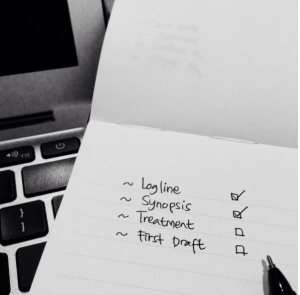 ~ Logline ☑
~ Synopsis ☑
~ Treatment ☐
~ First Draft ☐